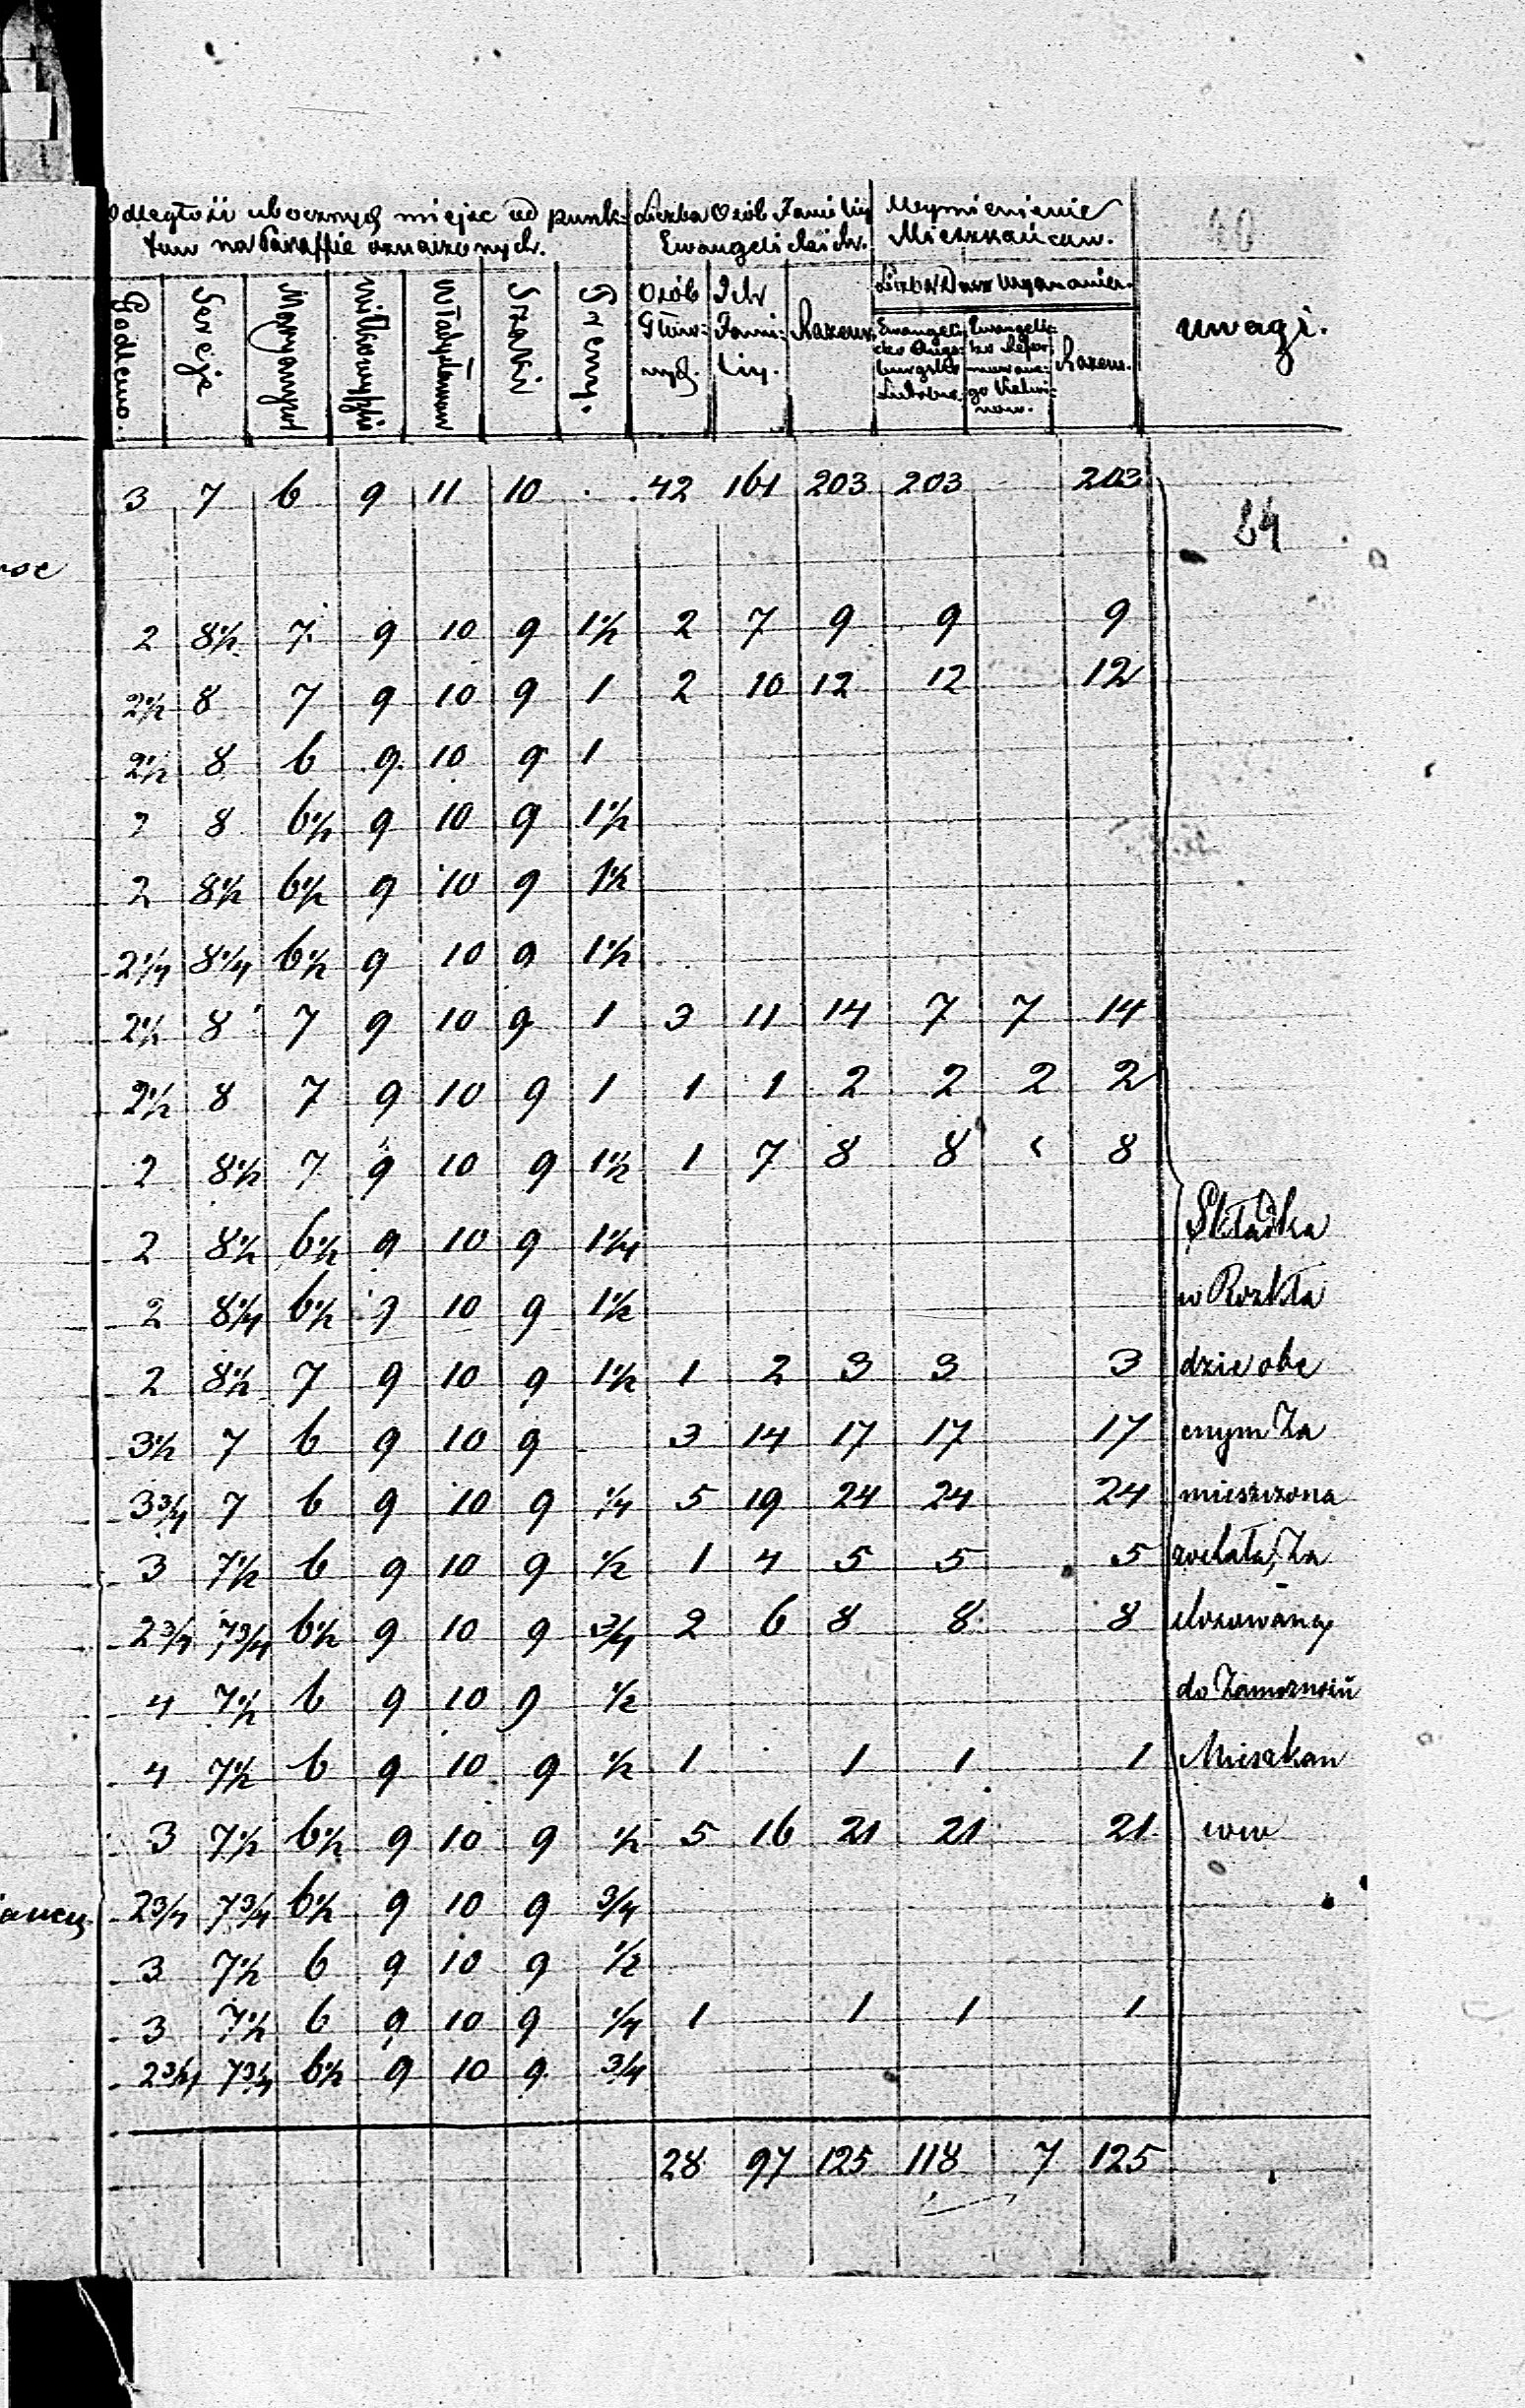 40
Odległość ubocznych miejsc od punk- Liczba Osób Familij Wymienienie
tów na Paraffie oznaczonych. Ewangelickich. Mieszkańców.
Godlewo. Sereje Maryampol Wiłkowyszki Władysławow Szaki Preny. Osób Głównych. Ich Familij. Razem. Liczba Dusz Wyznania. uwagi.
Ewangelicko Augsburgsko Ewangelicko Reformowanego Razem.
3 7 6 9 11 10 . 42 161 203 203 203
84
2 8½ 7 9 10 9 1½ 2 7 9 9 9
2½ 8 7 9 10 9 1 2 10 12 12 12
2½ 8 6 9 10 9 1
2 8 6½ 9 10 9 1½
2 8½ 6½ 9 10 9 1½
2¼ 8¼ 6½ 9 10 9 1½
2½ 8 7 9 10 9 1 3 11 14 7 7 14
2½ 8 7 9 10 9 1 1 1 2 2 2 2
2 8½ 7 9 10 9 1½ 1 7 8 8 8
2 8½ 6½ 9 10 9 1¼ Składka
2 8¼ 6½ 9 10 9 1½ w Rozkła
2 8½ 7 9 10 9 1½ 1 2 3 3 3 dzie obe
3½ 7 6 9 10 9 3 14 17 17 17 cnym Za
3¾ 7 6 9 10 9 ¼ 5 19 24 24 24 mieszczona
3 7½ 6 9 10 9 ½ 1 4 5 5 5 została, Za
2¾ 7¾ 6½ 9 10 9 ¾ 2 6 8 8 8 stosowaną
4 7½ 6 9 10 9 ½ do Zamożności
4 7½ 6 9 10 9 ½ 1 . 1 1 1 Mieszkań
3 7½ 6½ 9 10 9 ½ 5 16 21 21 21 ców
2¾ 7¾ 6½ 9 10 9 ¾
3 7½ 6 9 10 9 ½
3 7½ 6 9 10 9 ¼ 1 1 1 1
2¾ 7¾ 6½ 9 10 9 ¾
28 97 125 118 7 125